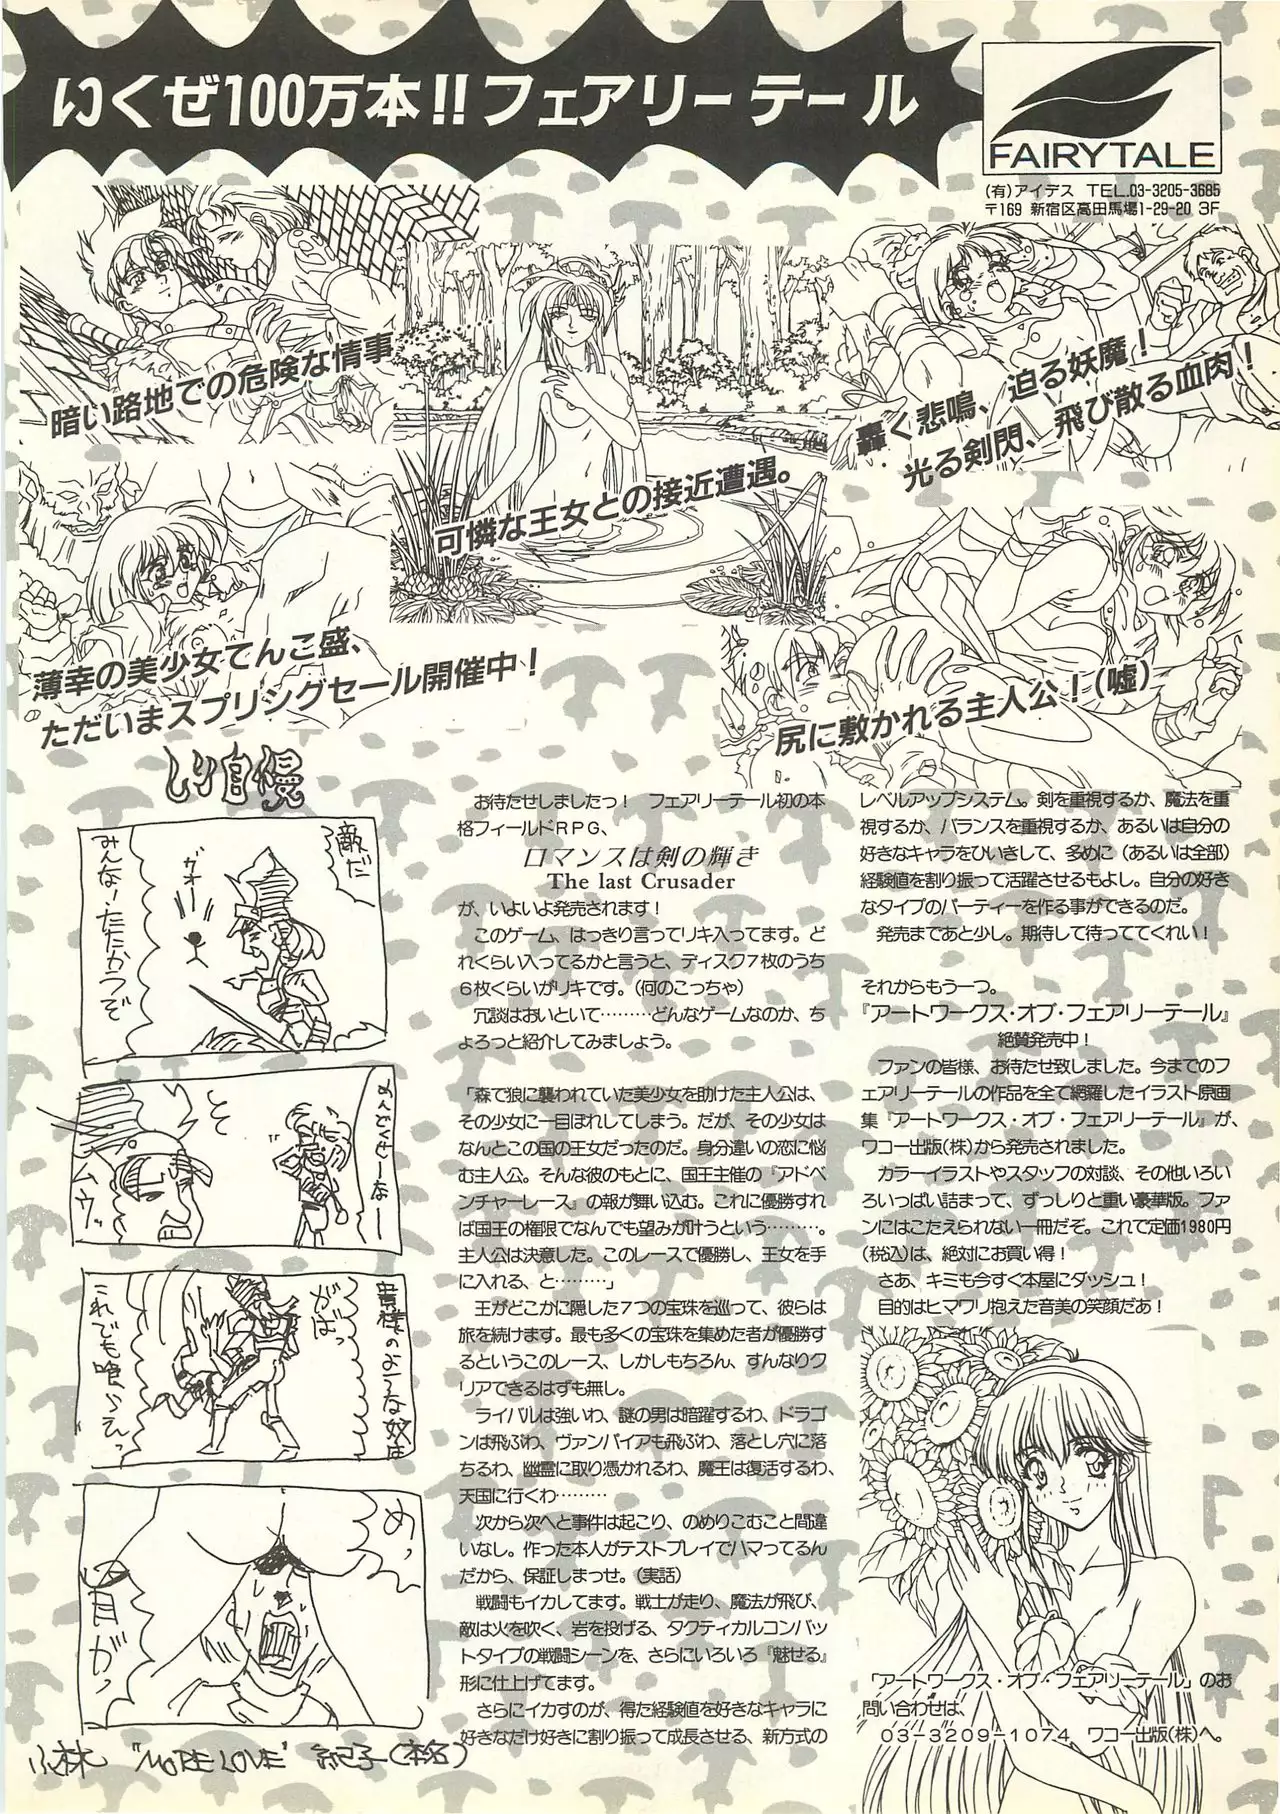 いくぜ100万本!!フェアリーテール
FAIRYTALE
(有)アイデス TEL.03-3205-3685
〒169 新宿区高田馬場1-29-20 3F
暗い路地での危険な情事
可憐な王女との接近遭遇。
轟く悲鳴、迫る妖魔！
光る剣閃、飛び散る血肉！
薄幸の美少女てんこ盛、
ただいまスプリングセール開催中！
尻に敷かれる主人公！(嘘)
しり自慢
敵だ
みんな！たたかうぞ
ガォー
めんどくせーなー
そ
ムウッ
貴様のような奴は
これでも喰らえっ
がおっ
めっ
目がっ
小林 "MORE LOVE" 紀子(本名)
お待たせしましたっ！　フェアリーテール初の本
格フィールドＲＰＧ、
ロマンスは剣の輝き
The last Crusader
が、いよいよ発売されます！
このゲーム、はっきり言ってリキ入ってます。ど
れくらい入ってるかと言うと、ディスク７枚のうち
６枚くらいがリキです。(何のこっちゃ)
冗談はおいといて………どんなゲームなのか、ち
ょろっと紹介してみましょう。
「森で狼に襲われていた美少女を助けた主人公は、
その少女に一目ぼれしてしまう。だが、その少女は
なんとこの国の王女だったのだ。身分違いの恋に悩
む主人公。そんな彼のもとに、国王主催の『アドベ
ンチャーレース』の報が舞い込む。これに優勝すれ
ば国王の権限でなんでも望みが叶うという………。
主人公は決意した。このレースで優勝し、王女を手
に入れる、と………」
王がどこかに隠した７つの宝珠を巡って、彼らは
旅を続けます。最も多くの宝珠を集めた者が優勝す
るというこのレース、しかしもちろん、すんなりク
リアできるはずも無し。
ライバルは強いわ、謎の男は暗躍するわ、ドラゴ
ンは飛ぶわ、ヴァンパイアも飛ぶわ、落とし穴に落
ちるわ、幽霊に取り憑かれるわ、魔王は復活するわ、
天国に行くわ………
次から次へと事件は起こり、のめりこむこと間違
いなし。作った本人がテストプレイでハマってるん
だから、保証しまっせ。(実話)
戦闘もイカしてます。戦士が走り、魔法が飛び、
敵は火を吹く、岩を投げる、タクティカルコンバッ
トタイプの戦闘シーンを、さらにいろいろ『魅せる』
形に仕上げてます。
さらにイカすのが、得た経験値を好きなキャラに
好きなだけ好きに割り振って成長させる、新方式の
レベルアップシステム。剣を重視するか、魔法を重
視するか、バランスを重視するか、あるいは自分の
好きなキャラをひいきして、多めに（あるいは全部）
経験値を割り振って活躍させるもよし。自分の好き
なタイプのパーティーを作る事ができるのだ。
発売まであと少し。期待して待っててくれい！
それからもう一つ。
『アートワークス・オブ・フェアリーテール』
絶賛発売中！
ファンの皆様、お待たせ致しました。今までのフ
ェアリーテールの作品を全て網羅したイラスト原画
集『アートワークス・オブ・フェアリーテール』が、
ワコー出版(株)から発売されました。
カラーイラストやスタッフの対談、その他いろい
ろいっぱい詰まって、ずっしりと重い豪華版。ファ
ンにはこたえられない一冊だぞ。これで定価1980円
(税込)は、絶対にお買い得！
さあ、キミも今すぐ本屋にダッシュ！
目的はヒマワリ抱えた音美の笑顔だあ！
「アートワークス・オブ・フェアリーテール」のお
問い合わせは、
03-3209-1074　ワコー出版(株)へ。